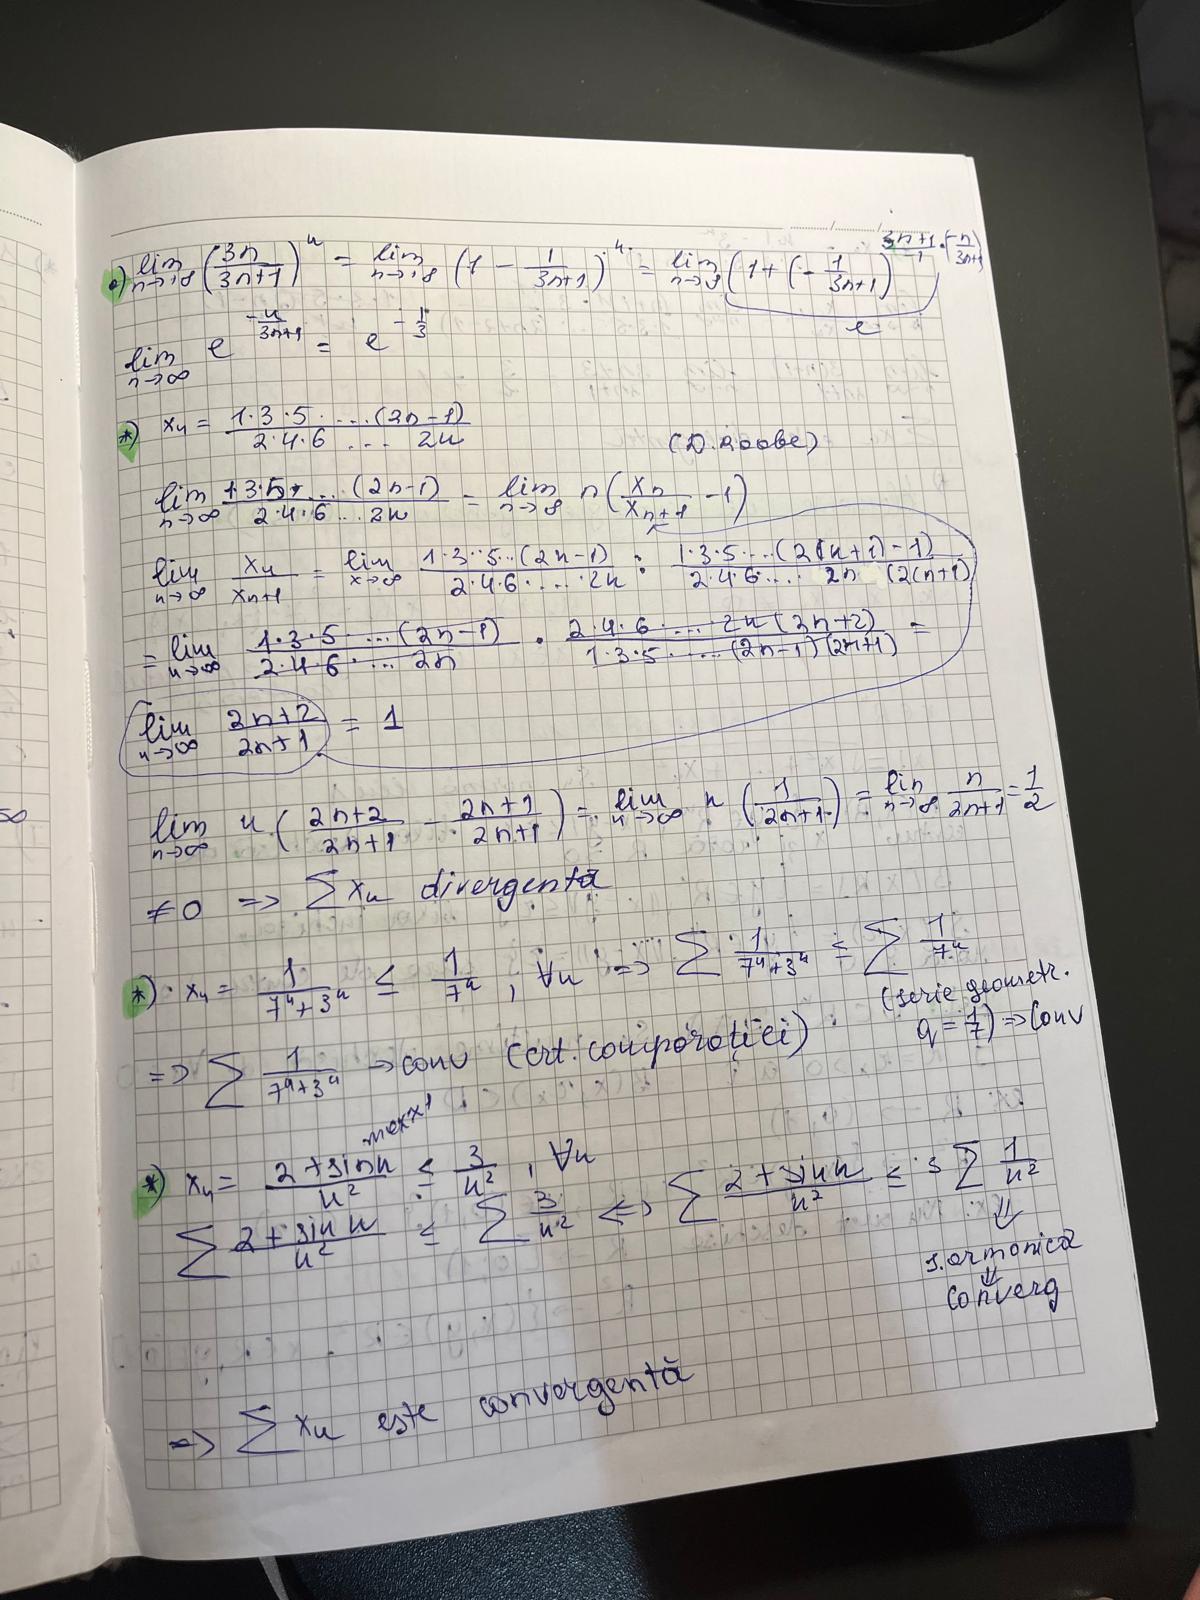 •) lim n→∞ (3n/(3n+1))^n = lim n→∞ (1 - 1/(3n+1))^n = lim n→∞ (1 + (-1/(3n+1)))^((3n+1)/-1 · (-n/(3n+1)))
e
lim n→∞ e^(-n/(3n+1)) = e^(-1/3)
*) xn = 1·3·5·...(2n-1) / 2·4·6 ... 2n
(D. Raabe)
lim n→∞ 1·3·5·...(2n-1) / 2·4·6...2n = lim n→∞ n (xn/xn+1 - 1)
lim n→∞ xn/xn+1 = lim x→∞ 1·3·5...(2n-1) / 2·4·6....·2n : 1·3·5...(2(n+1)-1) / 2·4·6.... 2n (2(n+1)
= lim n→∞ 1·3·5·...(2n-1) / 2·4·6·... 2n · 2·4·6·....2n(2n+2) / 1·3·5·....(2n-1)(2n+1) =
lim n→∞ (2n+2)/(2n+1) = 1
lim n→∞ n·((2n+2)/(2n+1) - (2n+1)/(2n+1)) = lim n→∞ n (1/(2n+1)) = lim n→∞ n/(2n+1) = 1/2
≠0 => ∑ xn divergentă
*) · xn = 1/(7^n+3^n) ≤ 1/7^n , ∀n => ∑ 1/(7^n+3^n) ≤ ∑ 1/7^n
(serie geometr.
q = 1/7) => Conv
=> ∑ 1/(7^n+3^n) → conv (crt. comparației)
max 1
*) xn = (2+sin n)/n² ≤ 3/n² , ∀n
∑ (2+sin n)/n² ≤ ∑ 3/n² <=> ∑ (2+sin n)/n² ≤ 3 ∑ 1/n²
⇓
s. armonică
⇓
Converg
=> ∑ xn este convergentă